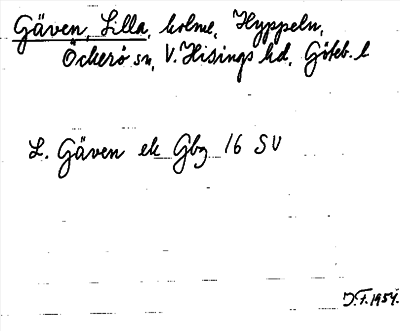 Gäven, Lilla, holme, Hyppeln,
Öckerö sn, V. Hisings hd, Göteb. l
L. Gäven ek Gbg 16 SV
J.F. 1954.